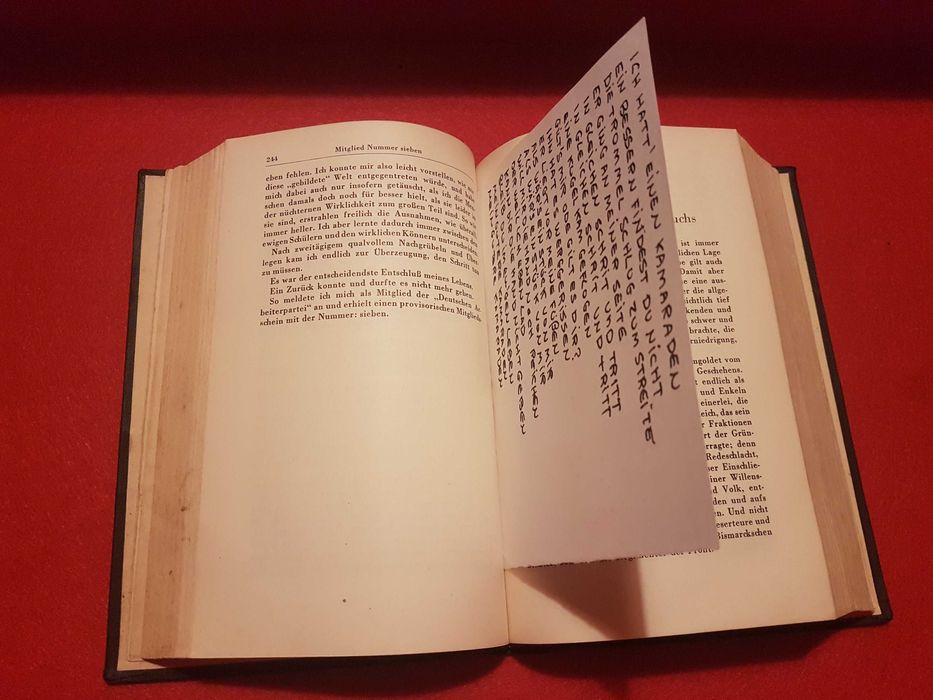 244
Mitglied Nummer sieben
eben fehlen. Ich konnte mir also leicht vorstellen, wie uns
diese „gebildete“ Welt entgegentreten würde, und hatte
mich dabei auch nur insofern getäuscht, als ich die
schen damals doch noch für besser hielt, als sie leider in
der nüchternen Wirklichkeit zum großen Teil sind. So wie
sie sind, erstrahlen freilich die Ausnahmen, wie überall,
immer heller. Ich aber lernte dadurch immer zwischen den
ewigen Schülern und den wirklichen Könnern unterscheiden.
Nach zweitägigem qualvollem Nachgrübeln und Über-
legen kam ich endlich zur Überzeugung, den Schritt tun
zu müssen.
Es war der entscheidendste Entschluß meines Lebens.
Ein Zurück konnte und durfte es nicht mehr geben.
So meldete ich mich als Mitglied der „Deutschen Ar-
beiterpartei“ an und erhielt einen provisorischen Mitglieds-
schein mit der Nummer: sieben.
ICH HATT' EINEN KAMARADEN
EIN BESSERN FINDEST DU NICHT
DIE TROMMEL SCHLUG ZUM STREITE
ER GING AN MEINER SEITE
IN GLEICHEN SCHRIT UND TRITT
IN GLEICHEN SCHRIT UND TRITT
EINE KUGEL KAM GEFLOGEN
GILT SIE MIR ODER GILT ES DIR?
IHN HAT ES WEGGERISSEN
uchs
ist immer
lichen Lage
be gilt auch
Damit aber
eine aus-
die allge-
sichtlich tief
kenden und
schwer und
brachte, die
rniedrigung,
ngoldet vom
Geschehens.
t endlich als
und Enkeln
einerlei, die
eich, das sein
Fraktionen
rt der Grün-
rragte; denn
Redeschlacht,
ser Einschlie-
iner Willens-
d Volk, ent-
den und aufs
en. Und nicht
eserteure und
Bismarckschen
der Front.